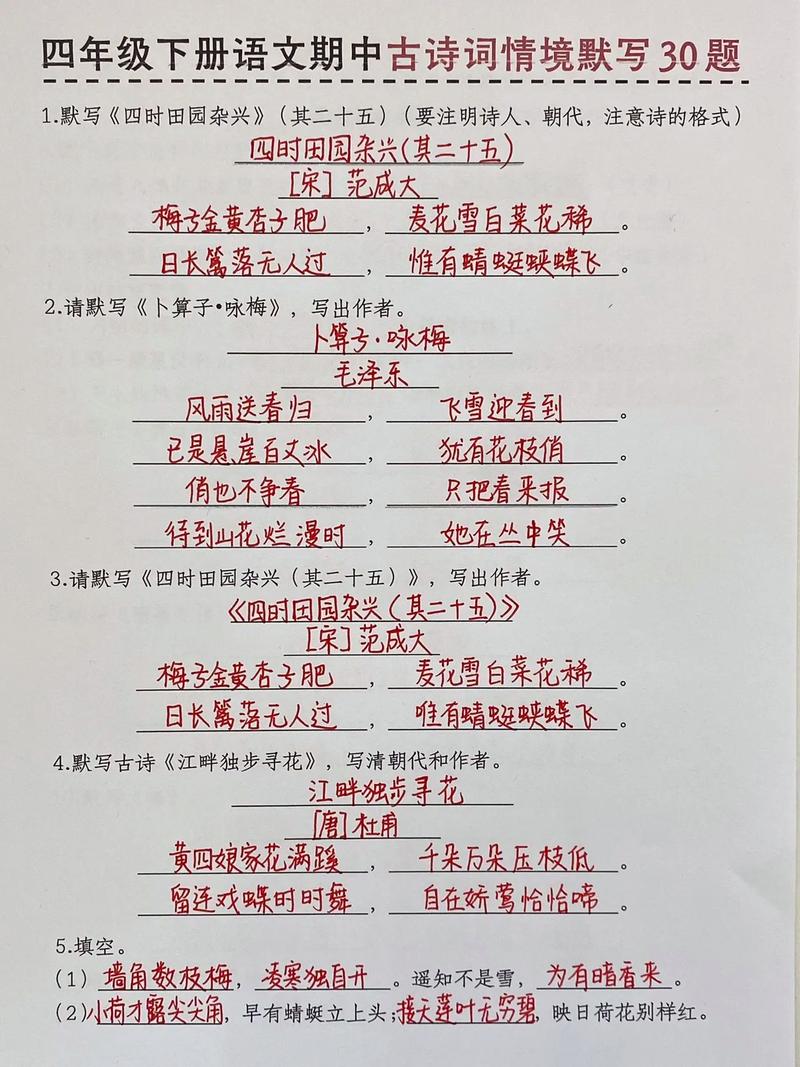 四年级下册语文期中古诗词情境默写30题
1.默写《四时田园杂兴》(其二十五)(要注明诗人、朝代,注意诗的格式)
四时田园杂兴(其二十五)
[宋]范成大
梅子金黄杏子肥,麦花雪白菜花稀。
日长篱落无人过,惟有蜻蜓蛱蝶飞。
2.请默写《卜算子•咏梅》,写出作者。
卜算子·咏梅
毛泽东
风雨送春归,飞雪迎春到。
已是悬崖百丈冰,犹有花枝俏。
俏也不争春,只把春来报。
待到山花烂漫时,她在丛中笑。
3.请默写《四时田园杂兴(其二十五)》,写出作者。
《四时田园杂兴(其二十五)》
[宋]范成大
梅子金黄杏子肥,麦花雪白菜花稀。
日长篱落无人过,唯有蜻蜓蛱蝶飞。
4.默写古诗《江畔独步寻花》,写清朝代和作者。
江畔独步寻花
[唐]杜甫
黄四娘家花满蹊,千朵万朵压枝低。
留连戏蝶时时舞,自在娇莺恰恰啼。
5.填空。
(1)墙角数枝梅,凌寒独自开。遥知不是雪,为有暗香来。
(2)小荷才露尖尖角,早有蜻蜓立上头;接天莲叶无穷碧,映日荷花别样红。